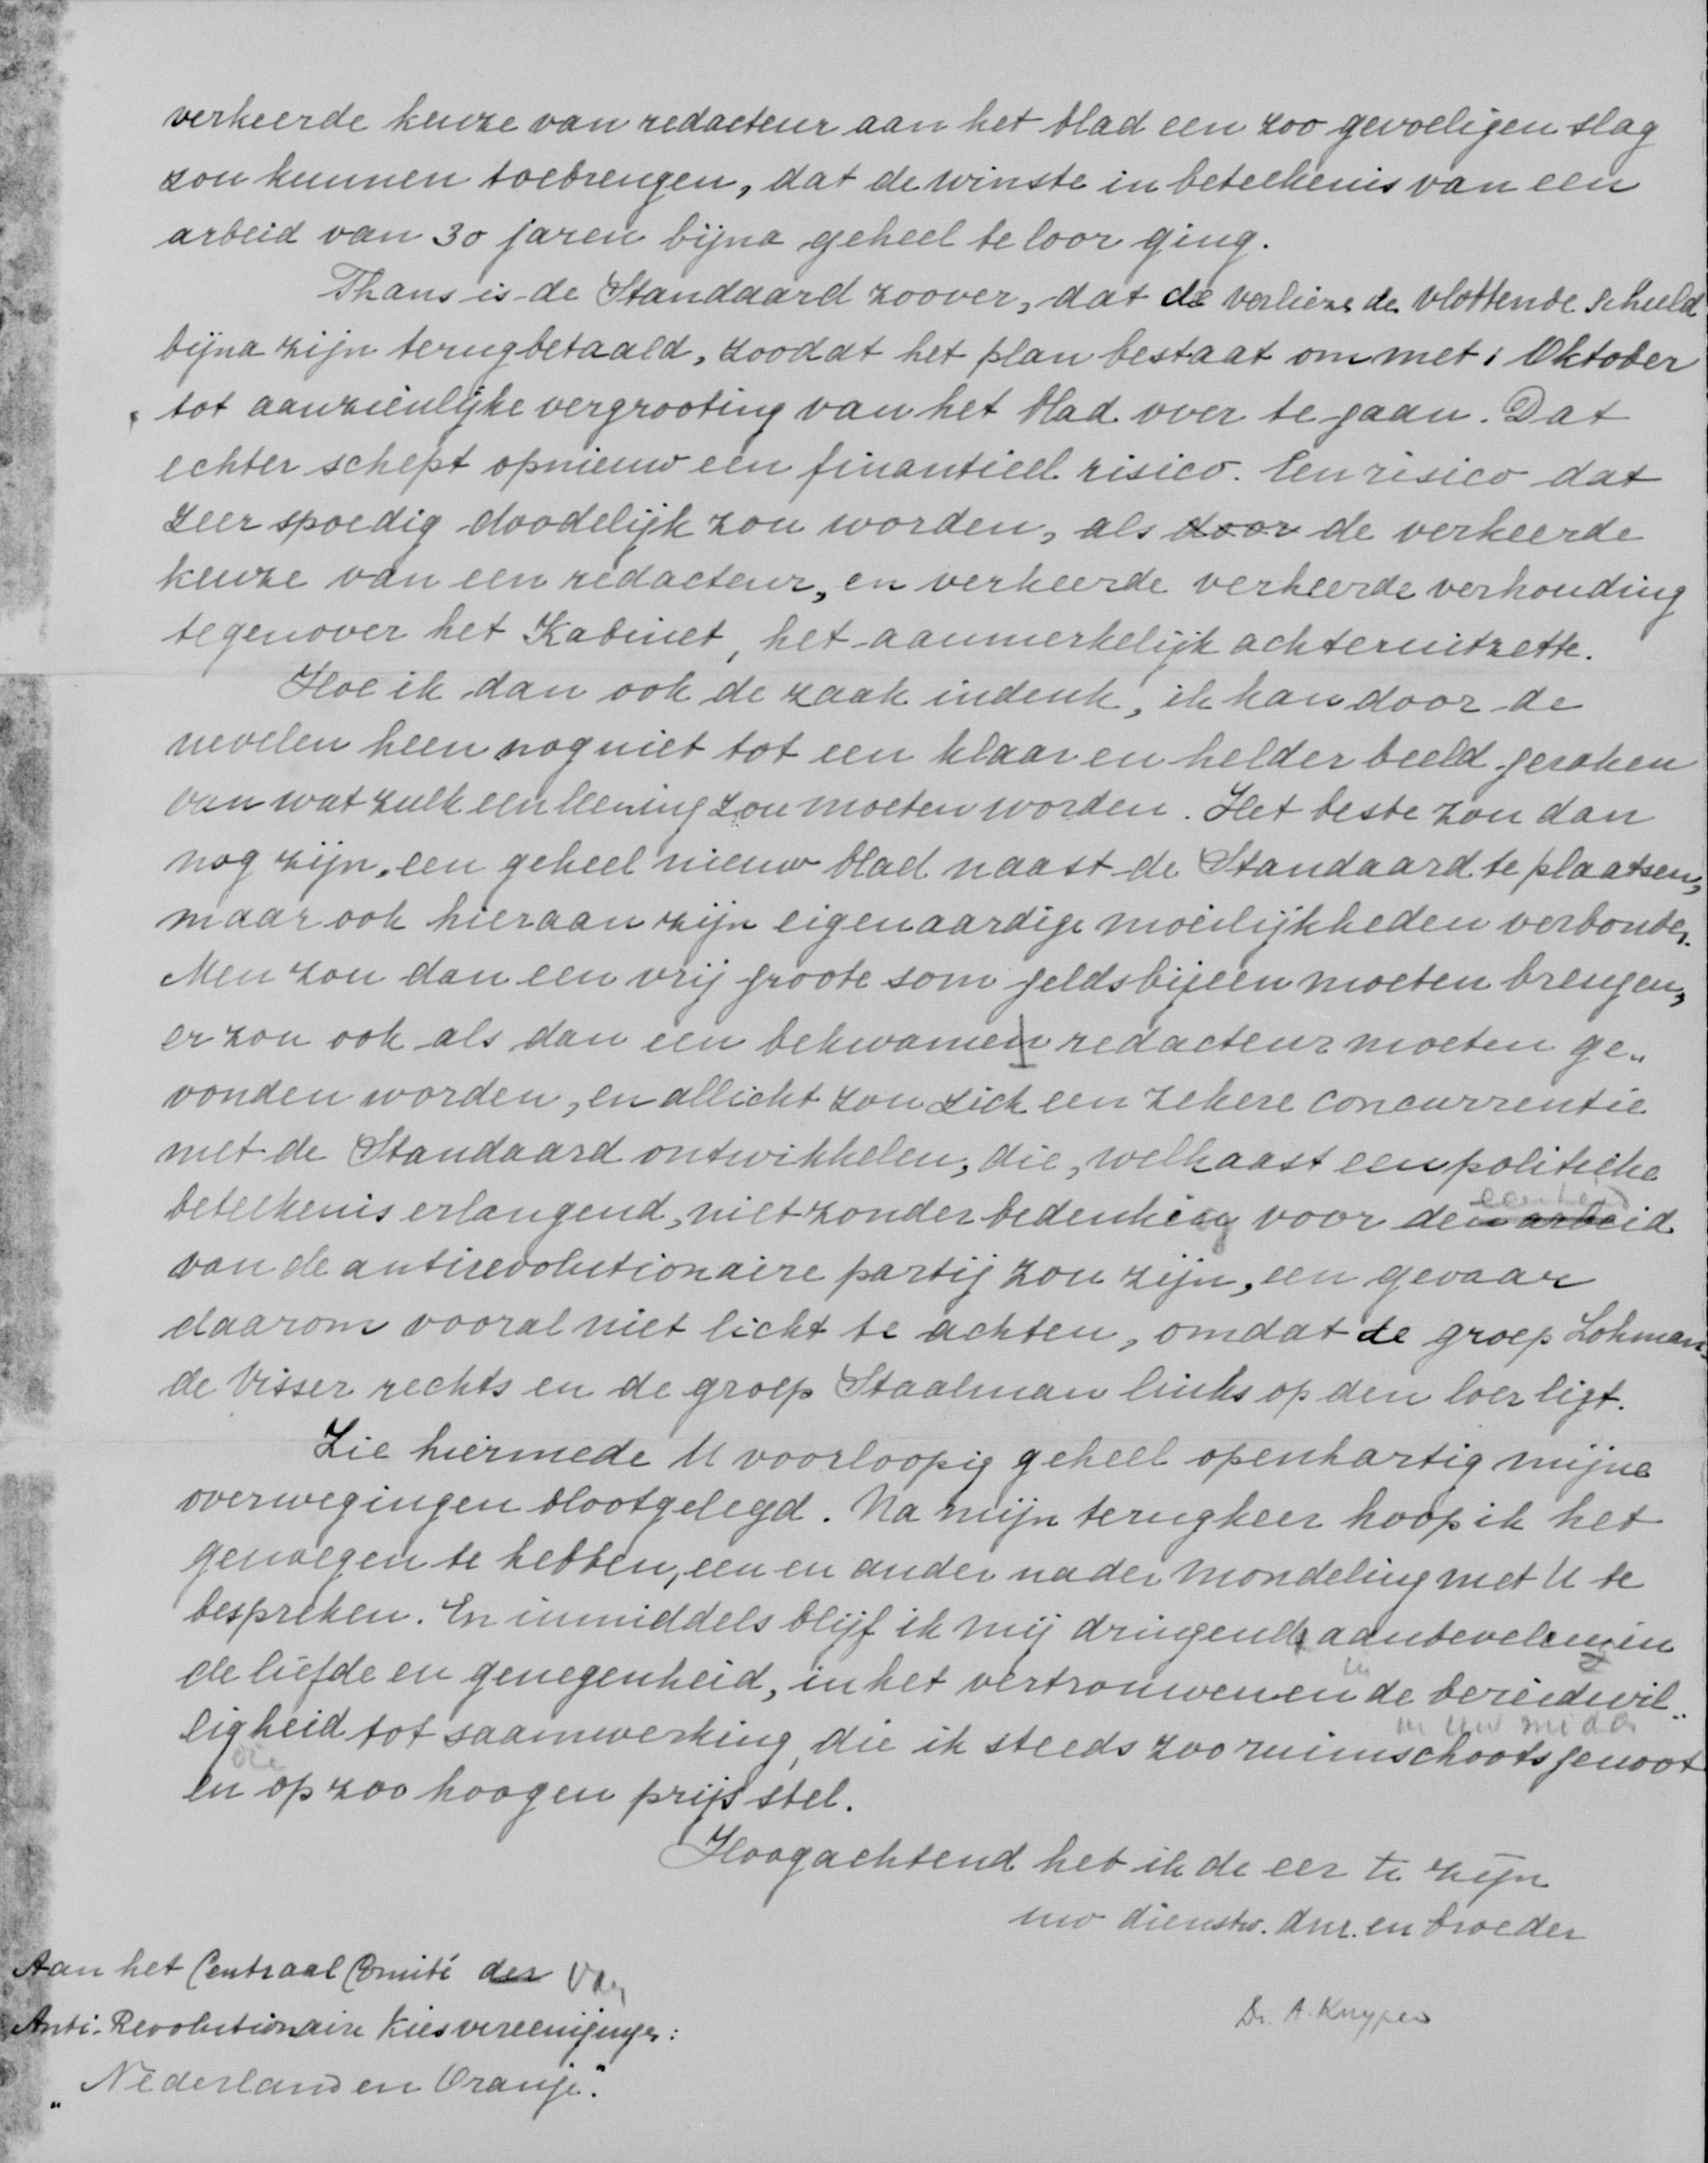 verkeerde keuze van redacteur aan het blad een zoo gevoeligen slag
zou kunnen toebrengen, dat de winste in beteekenis van een
arbeid van 30 jaren bijna geheel te loor ging.
Thans is de Standaard zoover, dat de verliezen de vlottende schuld
bijna zijn terugbetaald, zoodat het plan bestaat om met 1 Oktober
tot aanzienlijke vergrooting van het blad over te gaan. Dat
echter schept opnieuw een finantieel risico. Een risico dat
zeer spoedig doodelijk zou worden, als door de verkeerde
keuze van een redacteur, en verkeerde verkeerde verhouding
tegenover het Kabinet, het aanmerkelijk achteruitzette.
Hoe ik dan ook de zaak indenk, ik kan door de
nevelen heen nog niet tot een klaar en helder beeld geraken
van wat zulk een leening zou moeten worden. Het beste zou dan
nog zijn, een geheel nieuw blad naast de Standaard te plaatsen,
maar ook hieraan zijn eigenaardige moeilijkheden verbonden.
Men zou dan een vrij groote som gelds bijeen moeten brengen,
er zou ook als dan een bekwamen redacteur moeten ge„
vonden worden, en allicht zou zich een zekere concurrentie
met de Standaard ontwikkelen, die, welhaast een politieke
beteekenis erlangend, niet zonder bedenking voor den arbeid
eenheid
van de antirevolutionaire partij zou zijn, een gevaar
daarom vooral niet licht te achten, omdat de groep Lohman-
de Visser rechts en de groep Staalman links op den loer ligt.
Zie hiermede U voorloopig geheel openhartig mijne
overwegingen blootgelegd. Na mijn terugkeer hoop ik het
genoegen te hebben, een en ander nader mondeling met U te
bespreken. En inmiddels blijf ik mij dringend aanbevelen in
de liefde en genegenheid, in het vertrouwen en in de bereidwil„
ligheid tot saamwerking, die ik steeds in uw midden zoo ruimschoots genoot
en die op zoo hoogen prijs stel.
Hoogachtend heb ik de eer te zijn
uw dienstw. dnr. en broeder
Aan het Centraal Comité der van
Anti-Revolutionaire Kiesvereenigingen:
Dr. A. Kuyper
„Nederland en Oranje".